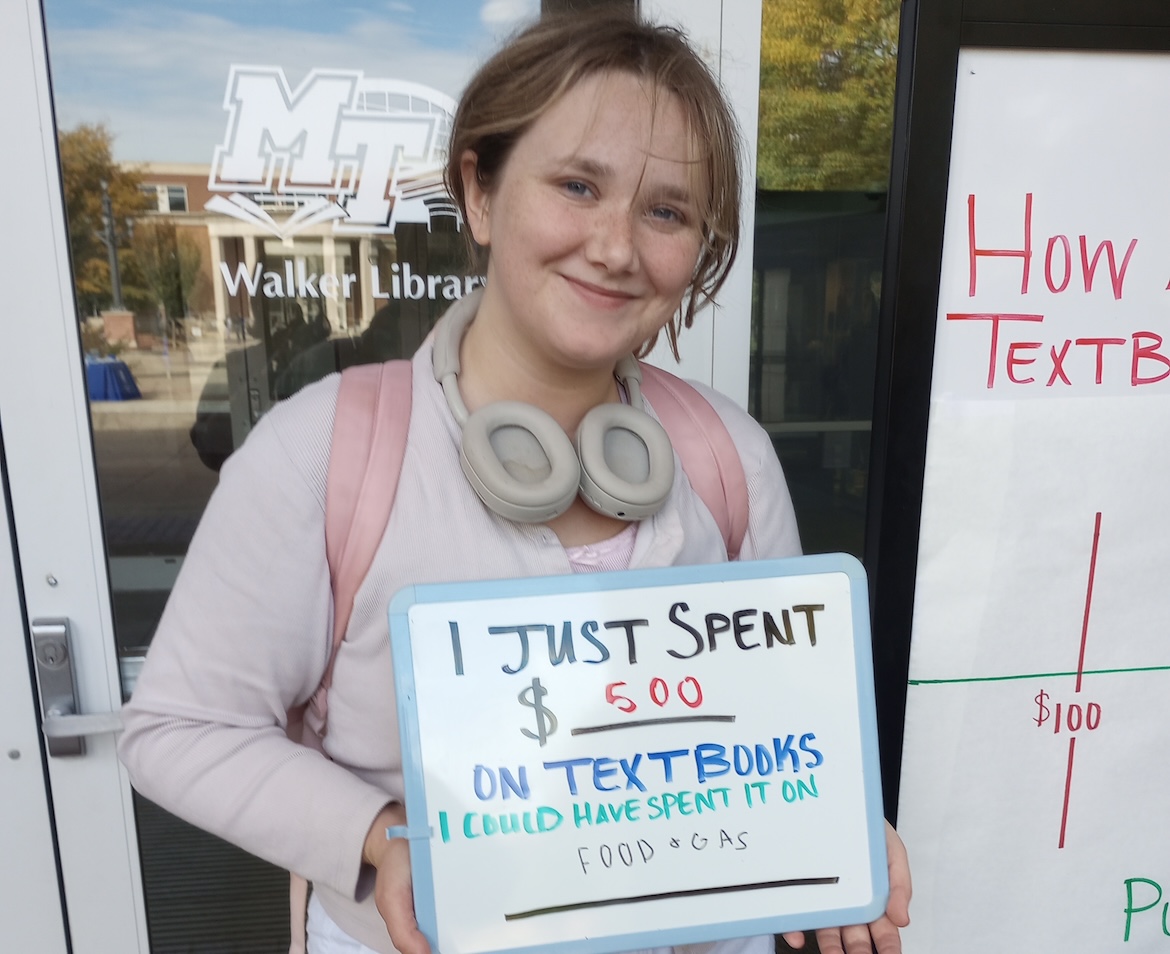 MT
Walker Library
I JUST SPENT
$ 500
ON TEXTBOOKS
I COULD HAVE SPENT IT ON
FOOD & GAS
HOW
TEXTB
$100
PU